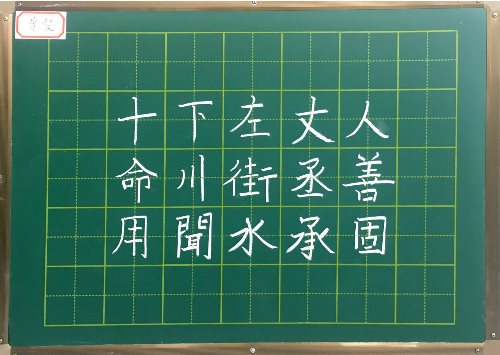 十下左丈人
命川街丞善
用聞水承固